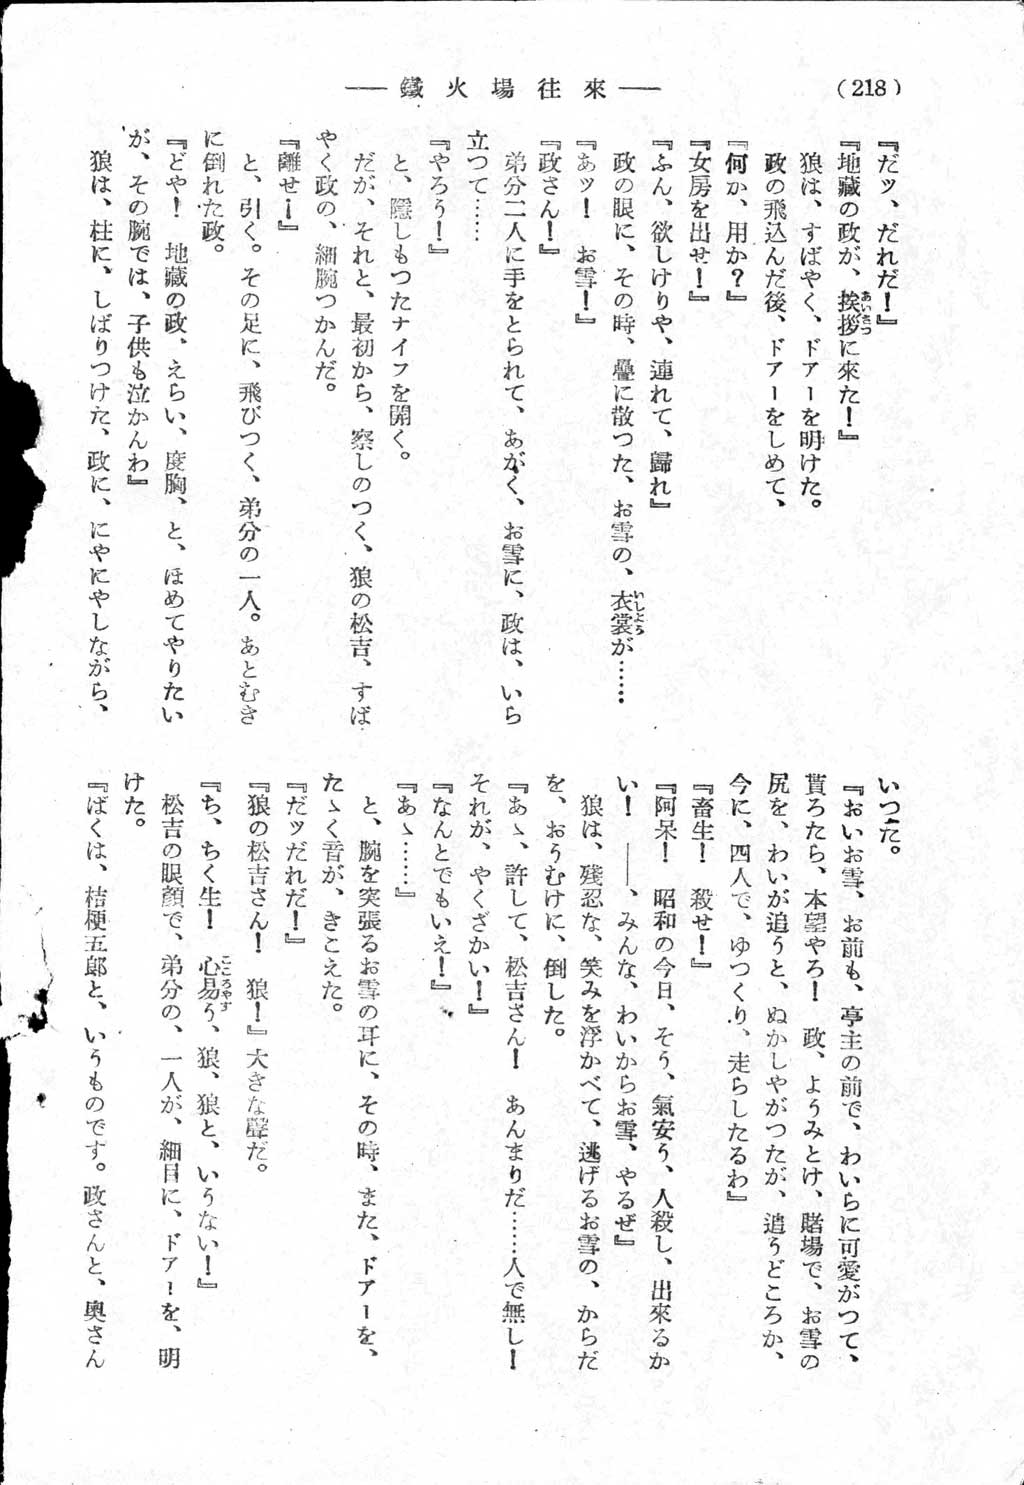 (218)
── 鐵火場往來 ──
『だッ、だれだ！』
『地藏の政が、挨拶に來た！』
あいさつ
狼は、すばやく、ドアーを明けた。
政の飛込んだ後、ドアーをしめて、
『何か、用か？』
『女房を出せ！』
『ふん、欲しけりや、連れて、歸れ』
政の眼に、その時、疊に散つた、お雪の、衣裳が……
いしよう
『あッ！　お雪！』
『政さん！』
弟分二人に手をとられて、あがく、お雪に、政は、いら
立つて……
『やろう！』
と、隱しもつたナイフを開く。
だが、それと、最初から、察しのつく、狼の松吉、すば
やく政の、細腕つかんだ。
『離せ！』
と、引く。その足に、飛びつく、弟分の一人。あとむき
に倒れた政。
『どや！　地藏の政、えらい、度胸、と、ほめてやりたい
が、その腕では、子供も泣かんわ』
狼は、柱に、しばりつけた、政に、にやにやしながら、
いつた。
『おいお雪、お前も、亭主の前で、わいらに可愛がつて、
貰ろたら、本望やろ！　政、ようみとけ、賭場で、お雪の
尻を、わいが追うと、ぬかしやがつたが、追うどころか、
今に、四人で、ゆつくり、走らしたるわ』
『畜生！　殺せ！』
『阿呆！　昭和の今日、そう、氣安う、人殺し、出來るか
い！　――、みんな、わいからお雪、やるぜ』
狼は、残忍な、笑みを浮かべて、逃げるお雪の、からだ
を、おうむけに、倒した。
『あゝ、許して、松吉さん！　あんまりだ……人で無し！
それが、やくざかい！』
『なんとでもいえ！』
『あゝ……』
と、腕を突張るお雪の耳に、その時、また、ドアーを、
たゝく音が、きこえた。
『だッだれだ！』
『狼の松吉さん！　狼！』大きな聲だ。
『ち、ちく生！　心易う、狼、狼と、いうない！』
こころやす
松吉の眼顔で、弟分の、一人が、細目に、ドアーを、明
けた。
『ばくは、桔梗五郎と、いうものです。政さんと、奥さん